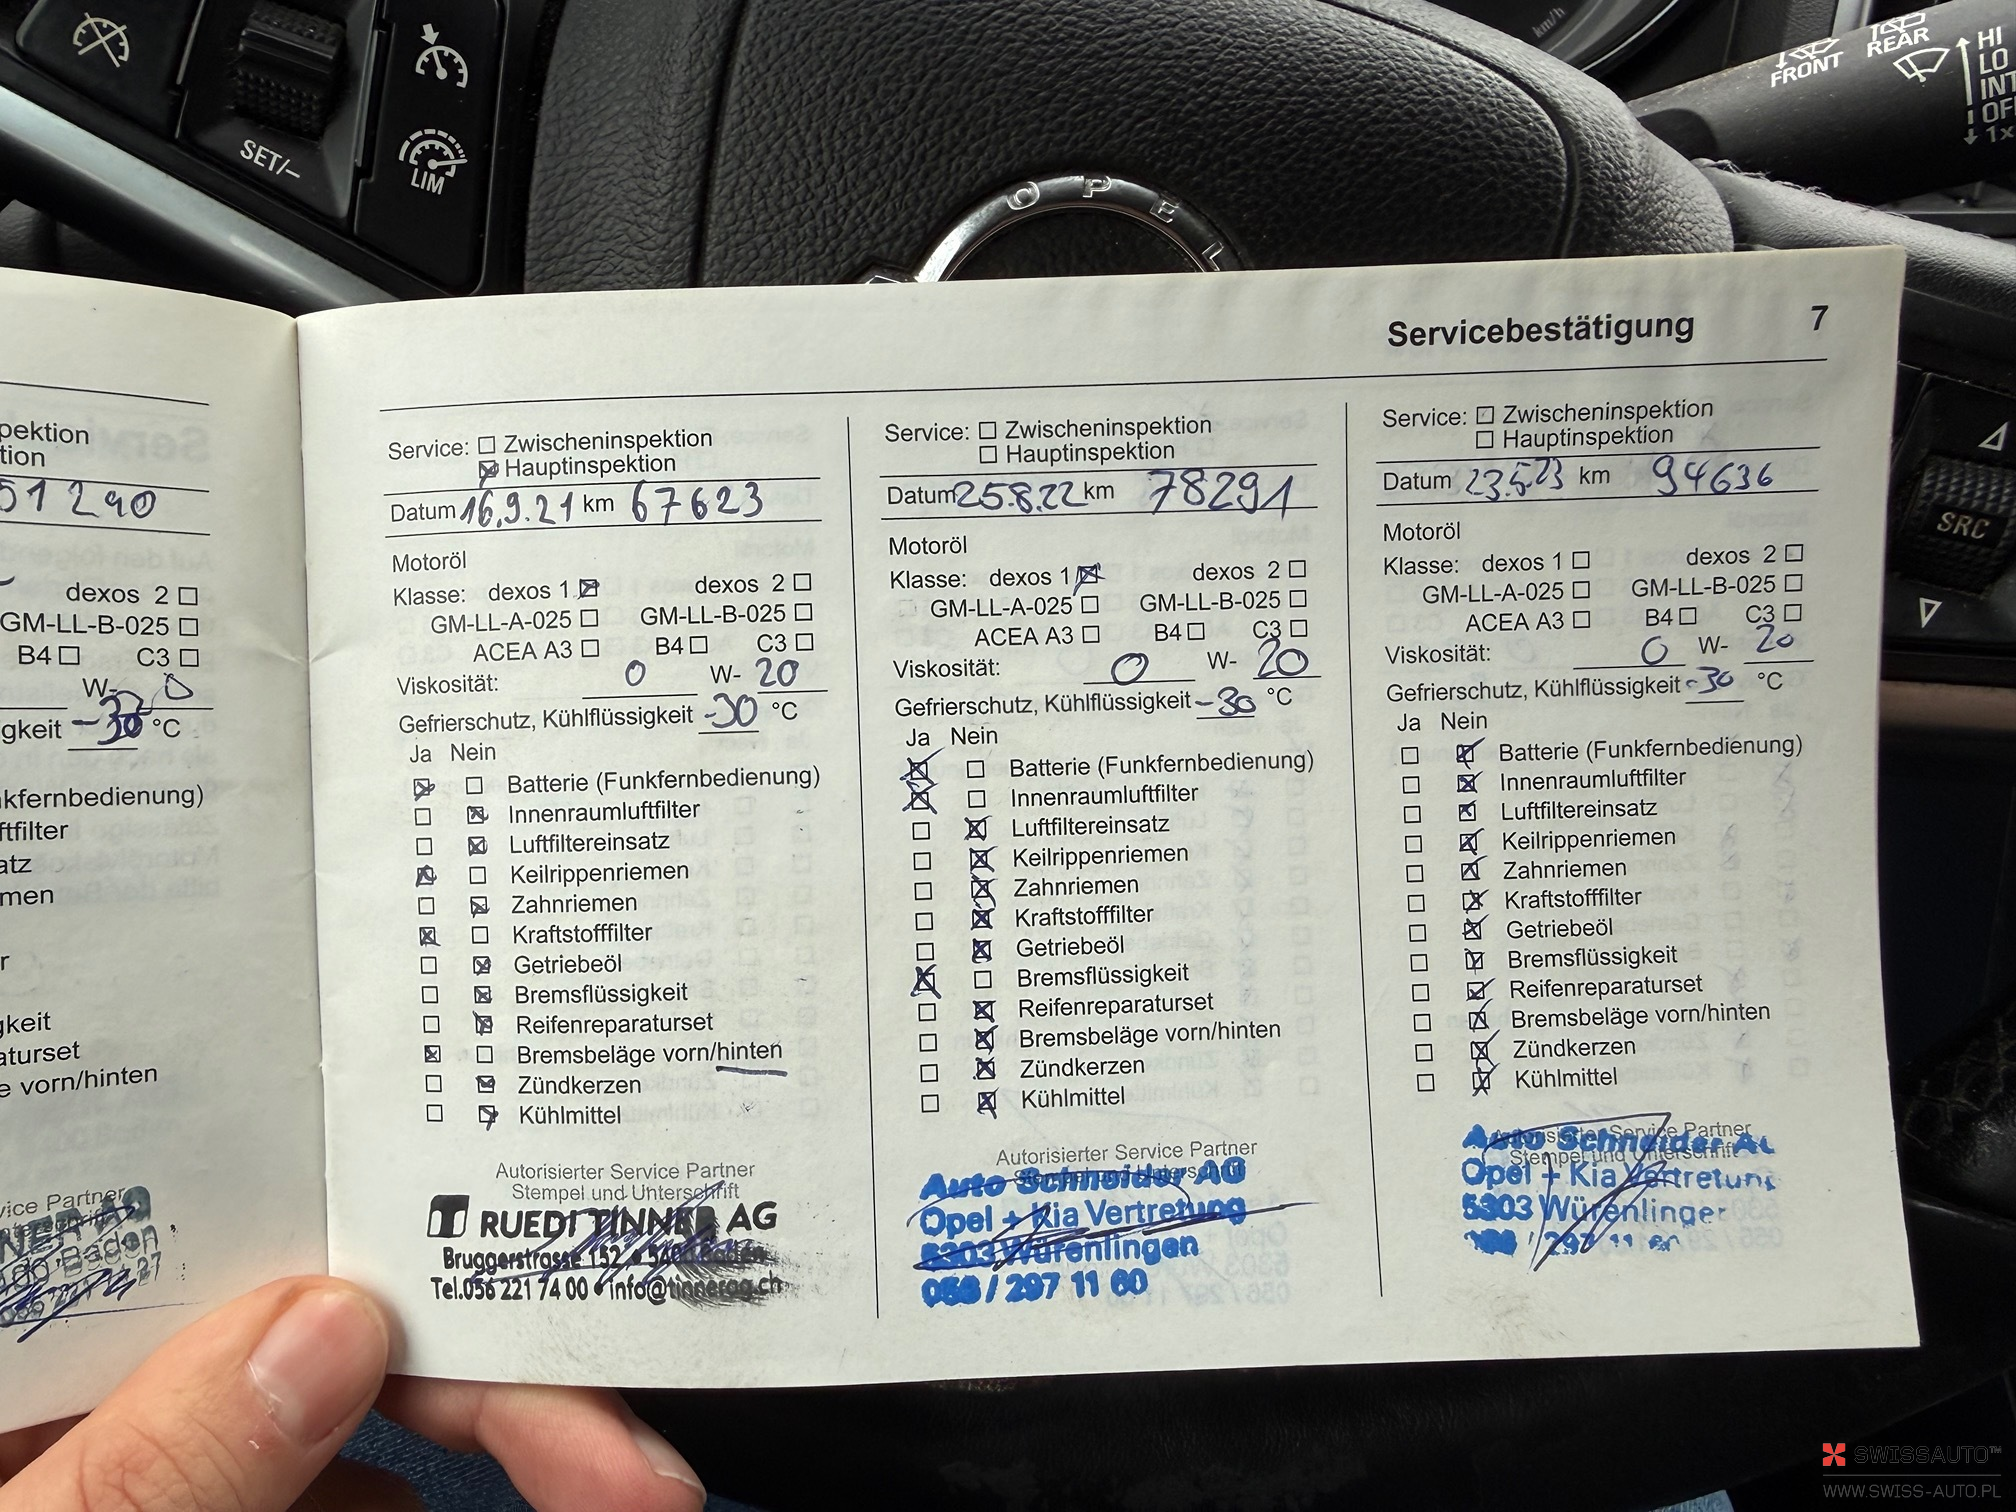 SET/–
LIM
OPEL
km/h
FRONT
REAR
HI
LO
INT
OF
1x
SRC
Servicebestätigung 7
pektion
tion
51290
dexos 2
GM-LL-B-025
B4 C3
W-
gkeit -30 °C
nkfernbedienung)
ftfilter
atz
men
r
gkeit
aturset
e vorn/hinten
vice Partner
NER AG
Baden
Service: Zwischeninspektion
Hauptinspektion
Datum 16.9.21 km 67623
Motoröl
Klasse: dexos 1 dexos 2
GM-LL-A-025 GM-LL-B-025
ACEA A3 B4 C3
Viskosität: 0 W- 20
Gefrierschutz, Kühlflüssigkeit -30 °C
Ja Nein
Batterie (Funkfernbedienung)
Innenraumluftfilter
Luftfiltereinsatz
Keilrippenriemen
Zahnriemen
Kraftstofffilter
Getriebeöl
Bremsflüssigkeit
Reifenreparaturset
Bremsbeläge vorn/hinten
Zündkerzen
Kühlmittel
Autorisierter Service Partner
Stempel und Unterschrift
RUEDI TINNER AG
Bruggerstrasse 152 • Baden
Tel.056 221 74 00 • info@tinnerag.ch
Service: Zwischeninspektion
Hauptinspektion
Datum 25.8.22 km 78291
Motoröl
Klasse: dexos 1 dexos 2
GM-LL-A-025 GM-LL-B-025
ACEA A3 B4 C3
Viskosität: 0 W- 20
Gefrierschutz, Kühlflüssigkeit -30 °C
Ja Nein
Batterie (Funkfernbedienung)
Innenraumluftfilter
Luftfiltereinsatz
Keilrippenriemen
Zahnriemen
Kraftstofffilter
Getriebeöl
Bremsflüssigkeit
Reifenreparaturset
Bremsbeläge vorn/hinten
Zündkerzen
Kühlmittel
Autorisierter Service Partner
Stempel und Unterschrift
Auto Schneider AG
Opel + Kia Vertretung
5303 Würenlingen
056 / 297 11 60
Service: Zwischeninspektion
Hauptinspektion
Datum 23.5.23 km 94636
Motoröl
Klasse: dexos 1 dexos 2
GM-LL-A-025 GM-LL-B-025
ACEA A3 B4 C3
Viskosität: 0 W- 20
Gefrierschutz, Kühlflüssigkeit -30 °C
Ja Nein
Batterie (Funkfernbedienung)
Innenraumluftfilter
Luftfiltereinsatz
Keilrippenriemen
Zahnriemen
Kraftstofffilter
Getriebeöl
Bremsflüssigkeit
Reifenreparaturset
Bremsbeläge vorn/hinten
Zündkerzen
Kühlmittel
Autorisierter Service Partner
Stempel und Unterschrift
Auto Schneider AG
Opel + Kia Vertretung
5303 Würenlingen
297 11 60
SWISSAUTO™
WWW.SWISS-AUTO.PL